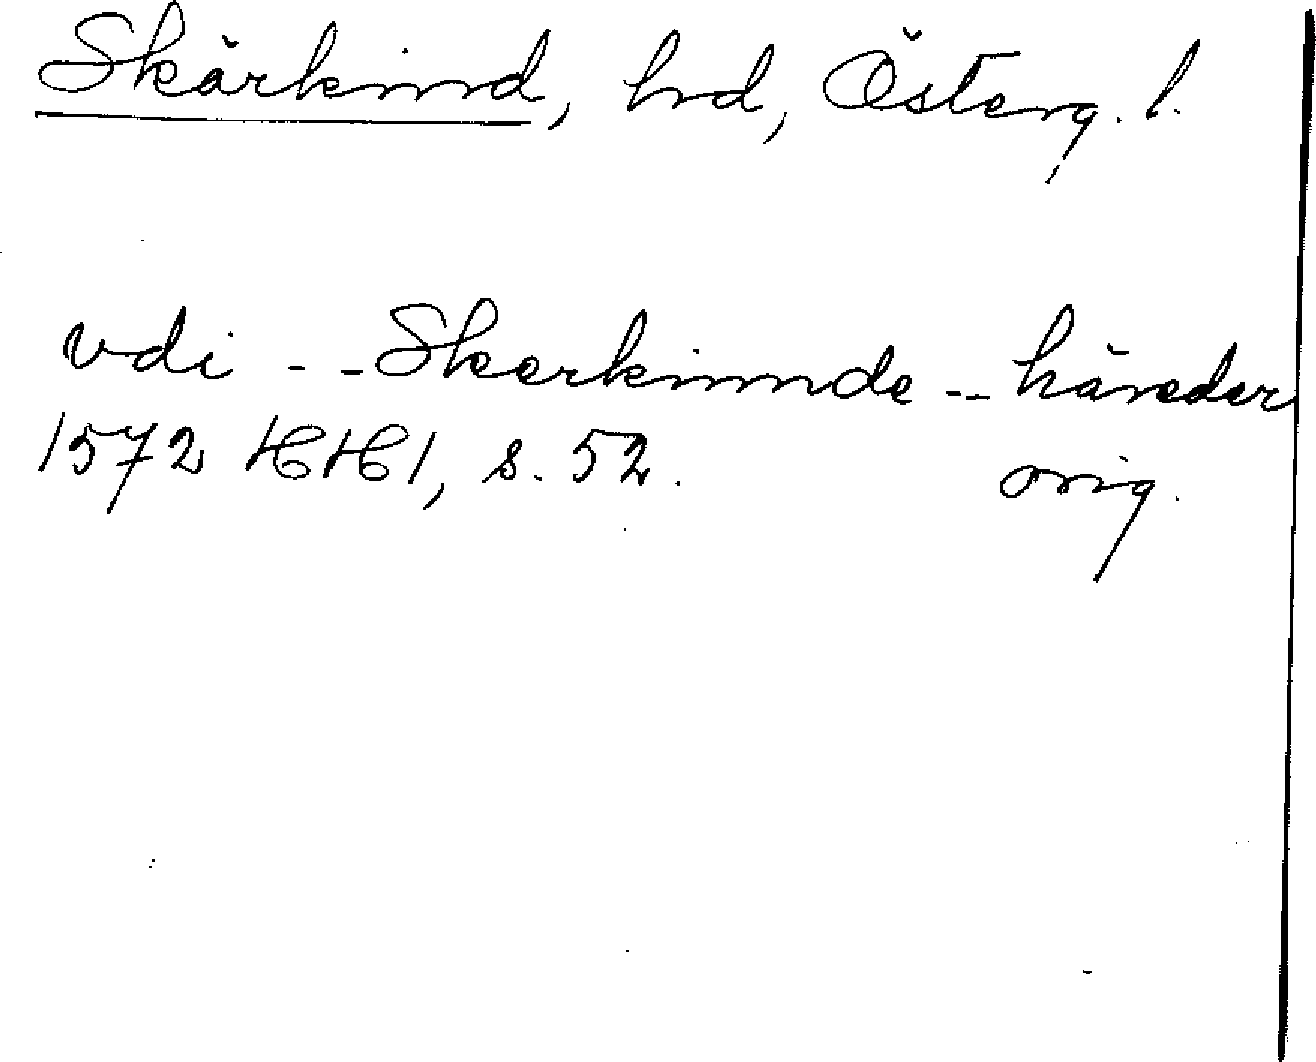 Skärkind, hd, Österg. l.
vdi -- Skerkinnde -- häreder
1572 HH1, s. 52. orig.